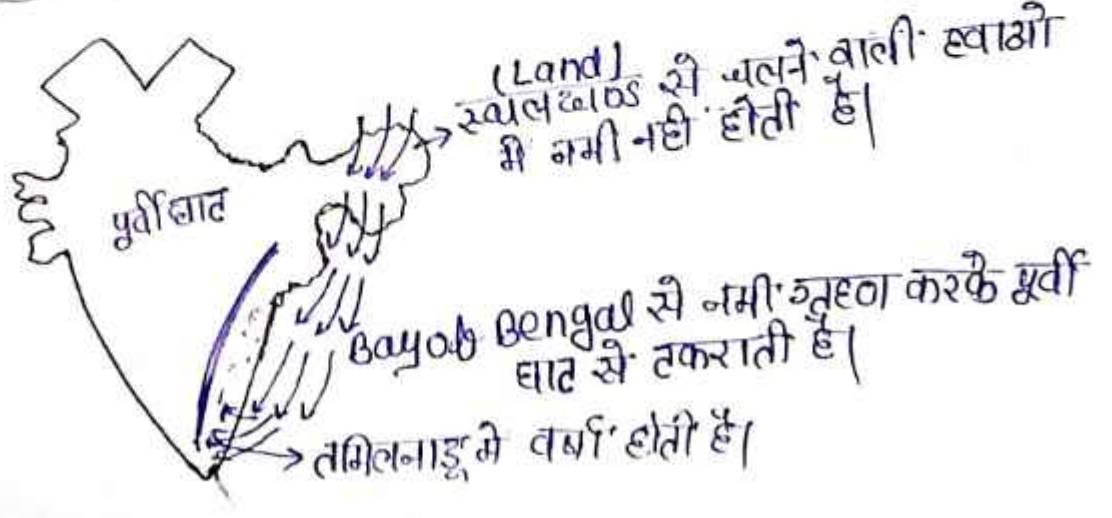 (Land)
स्थलखण्ड से चलने वाली हवाओ
मे नमी नही होती है।
पूर्वी घाट
Bay of Bengal से नमी ग्रहण करके पूर्वी
घाट से टकराती है।
तमिलनाडू मे वर्षा होती है।